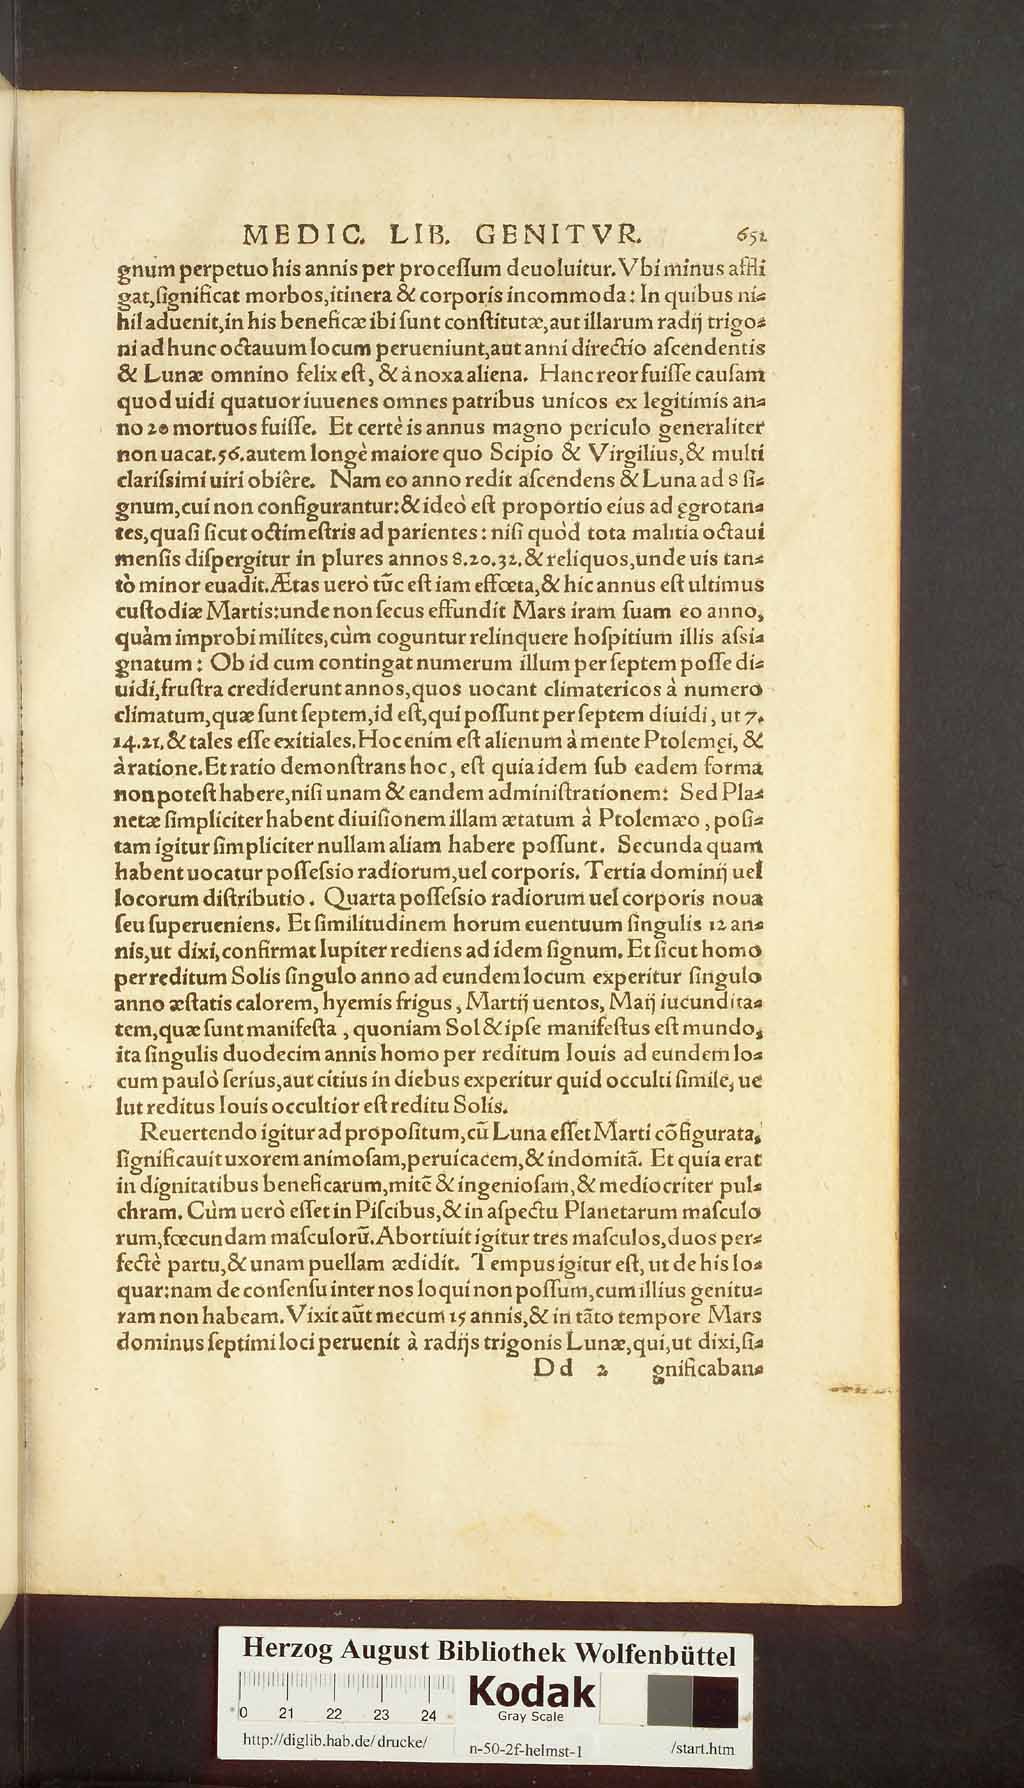 MEDIC. LIB. GENITVR. 651
gnum perpetuo his annis per processum deuoluitur. Vbi minus affli
gat, significat morbos, itinera & corporis incommoda: In quibus ni-
hil aduenit, in his beneficæ ibi sunt constitutæ, aut illarum radij trigo-
ni ad hunc octauum locum perueniunt, aut anni directio ascendentis
& Lunæ omnino felix est, & à noxa aliena. Hanc reor fuisse causam
quod uidi quatuor iuuenes omnes patribus unicos ex legitimis an-
no 20 mortuos fuisse. Et certè is annus magno periculo generaliter
non uacat. 56. autem longè maiore quo Scipio & Virgilius, & multi
clarissimi uiri obiêre. Nam eo anno redit ascendens & Luna ad 8 si-
gnum, cui non configurantur: & ideò est proportio eius ad ęgrotan-
tes, quasi sicut octimestris ad parientes: nisi quòd tota malitia octaui
mensis dispergitur in plures annos 8.20.32. & reliquos, unde uis tan-
tò minor euadit. Ætas uerò tũc est iam effœta, & hic annus est ultimus
custodiæ Martis: unde non secus effundit Mars iram suam eo anno,
quàm improbi milites, cùm coguntur relinquere hospitium illis assi-
gnatum: Ob id cum contingat numerum illum per septem posse di-
uidi, frustra crediderunt annos, quos uocant climatericos à numero
climatum, quæ sunt septem, id est, qui possunt per septem diuidi, ut 7.
14.21. & tales esse exitiales. Hoc enim est alienum à mente Ptolemęi, &
à ratione. Et ratio demonstrans hoc, est quia idem sub eadem forma
non potest habere, nisi unam & eandem administrationem: Sed Pla-
netæ simpliciter habent diuisionem illam ætatum à Ptolemæo, posi-
tam igitur simpliciter nullam aliam habere possunt. Secunda quam
habent uocatur possessio radiorum, uel corporis. Tertia dominij uel
locorum distributio. Quarta possessio radiorum uel corporis noua
seu superueniens. Et similitudinem horum euentuum singulis 12 an-
nis, ut dixi, confirmat Iupiter rediens ad idem signum. Et sicut homo
per reditum Solis singulo anno ad eundem locum experitur singulo
anno æstatis calorem, hyemis frigus, Martij uentos, Maij iucundita-
tem, quæ sunt manifesta, quoniam Sol & ipse manifestus est mundo,
ita singulis duodecim annis homo per reditum Iouis ad eundem lo-
cum paulò serius, aut citius in diebus experitur quid occulti simile, ue
lut reditus Iouis occultior est reditu Solis.
Reuertendo igitur ad propositum, cũ Luna esset Marti cõfigurata,
significauit uxorem animosam, peruicacem, & indomitã. Et quia erat
in dignitatibus beneficarum, mitẽ & ingeniosam, & mediocriter pul-
chram. Cùm uerò esset in Piscibus, & in aspectu Planetarum masculo
rum, fœcundam masculorũ. Abortiuit igitur tres masculos, duos per-
fectè partu, & unam puellam ædidit. Tempus igitur est, ut de his lo-
quar: nam de consensu inter nos loqui non possum, cum illius genitu-
ram non habeam. Vixit aũt mecum 15 annis, & in tãto tempore Mars
dominus septimi loci peruenit à radijs trigonis Lunæ, qui, ut dixi, si-
Dd 2 gnificaban-
Herzog August Bibliothek Wolfenbüttel
0 21 22 23 24
Kodak
Gray Scale
http://diglib.hab.de/drucke/ n-50-2f-helmst-1 /start.htm